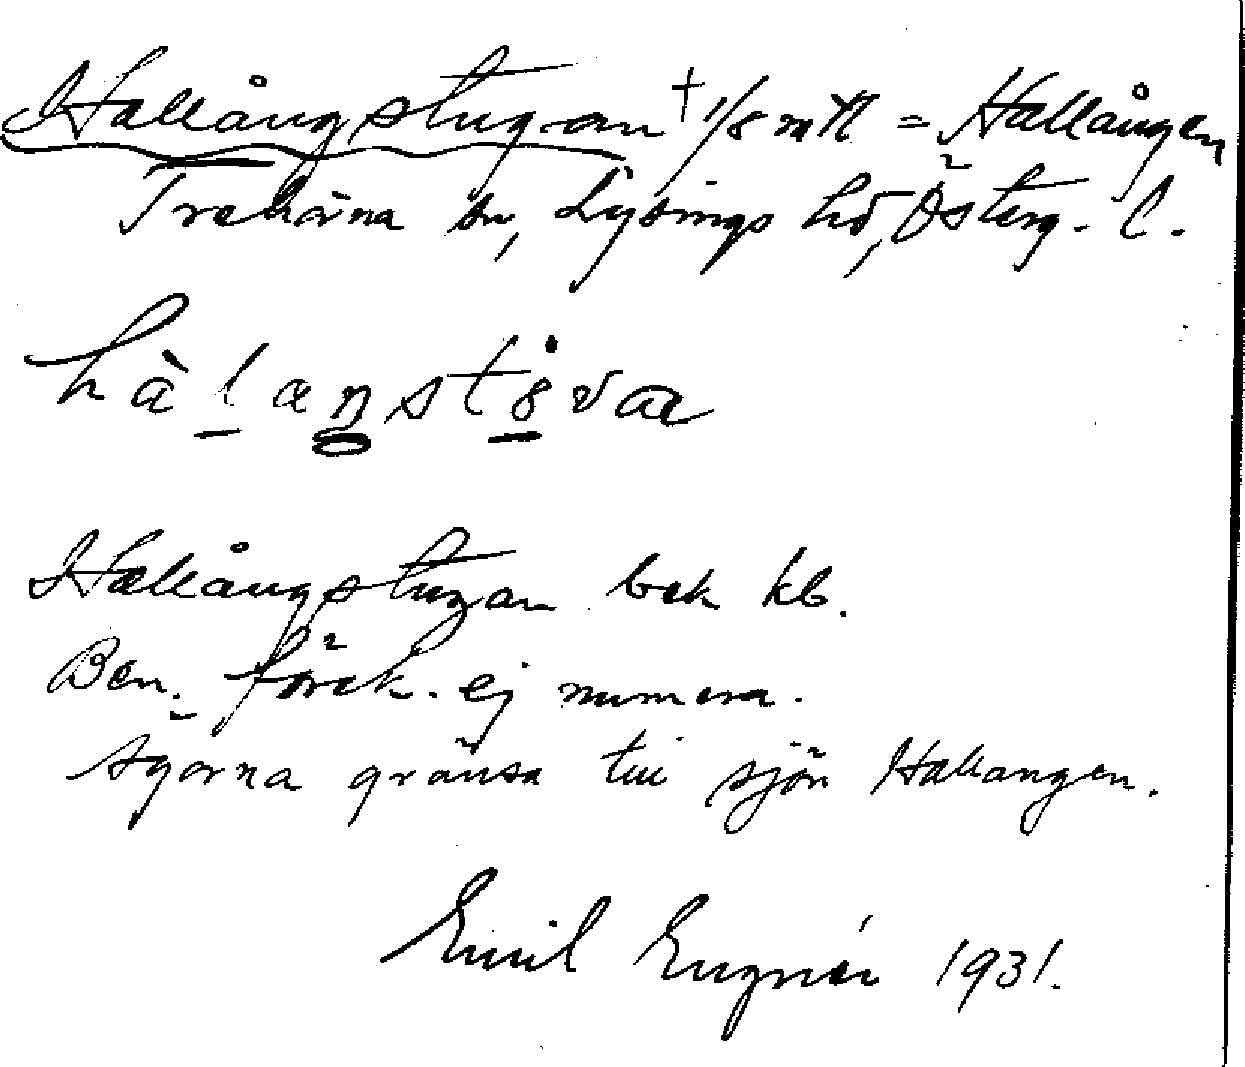 Hallångstugan † 1/8 mtl = Hallången
Trehörna sn, Lysings hd, Österg. l.
hàlaŋstȯva
Hallångstugan bek kb.
Ben. förek. ej numera.
Ägorna gränsa till sjön Hallangen.
Emil Engnér 1931.